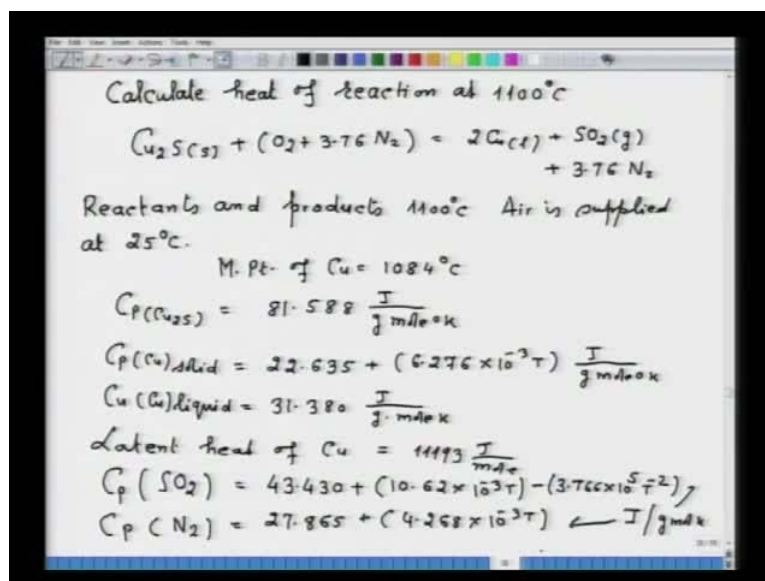 Calculate heat of reaction at 1100°C
Cu2S(s) + (O2 + 3.76 N2) = 2Cu(l) + SO2(g)
+ 3.76 N2
Reactants and products 1100°C Air is supplied
at 25°C.
M. Pt. of Cu = 1084°C
Cp(Cu2S) = 81.588 J/g mole °K
Cp(Cu)solid = 22.635 + (6.276 × 10^-3 T) J/g mole °K
Cu(Cu)liquid = 31.380 J/g. mole K
Latent heat of Cu = 11193 J/mole
Cp(SO2) = 43.430 + (10.62 × 10^-3 T) - (3.766 × 10^5 T^-2),
Cp(N2) = 27.865 + (4.268 × 10^-3 T) ← J/gmole K